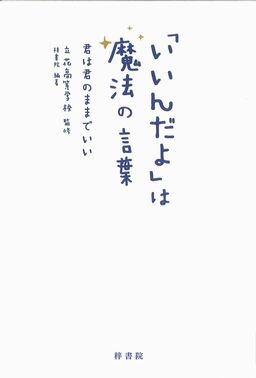 「いいんだよ」は
魔法の言葉
君は君のままでいい
立花高等学校 監修
梓書院 編著
梓書院